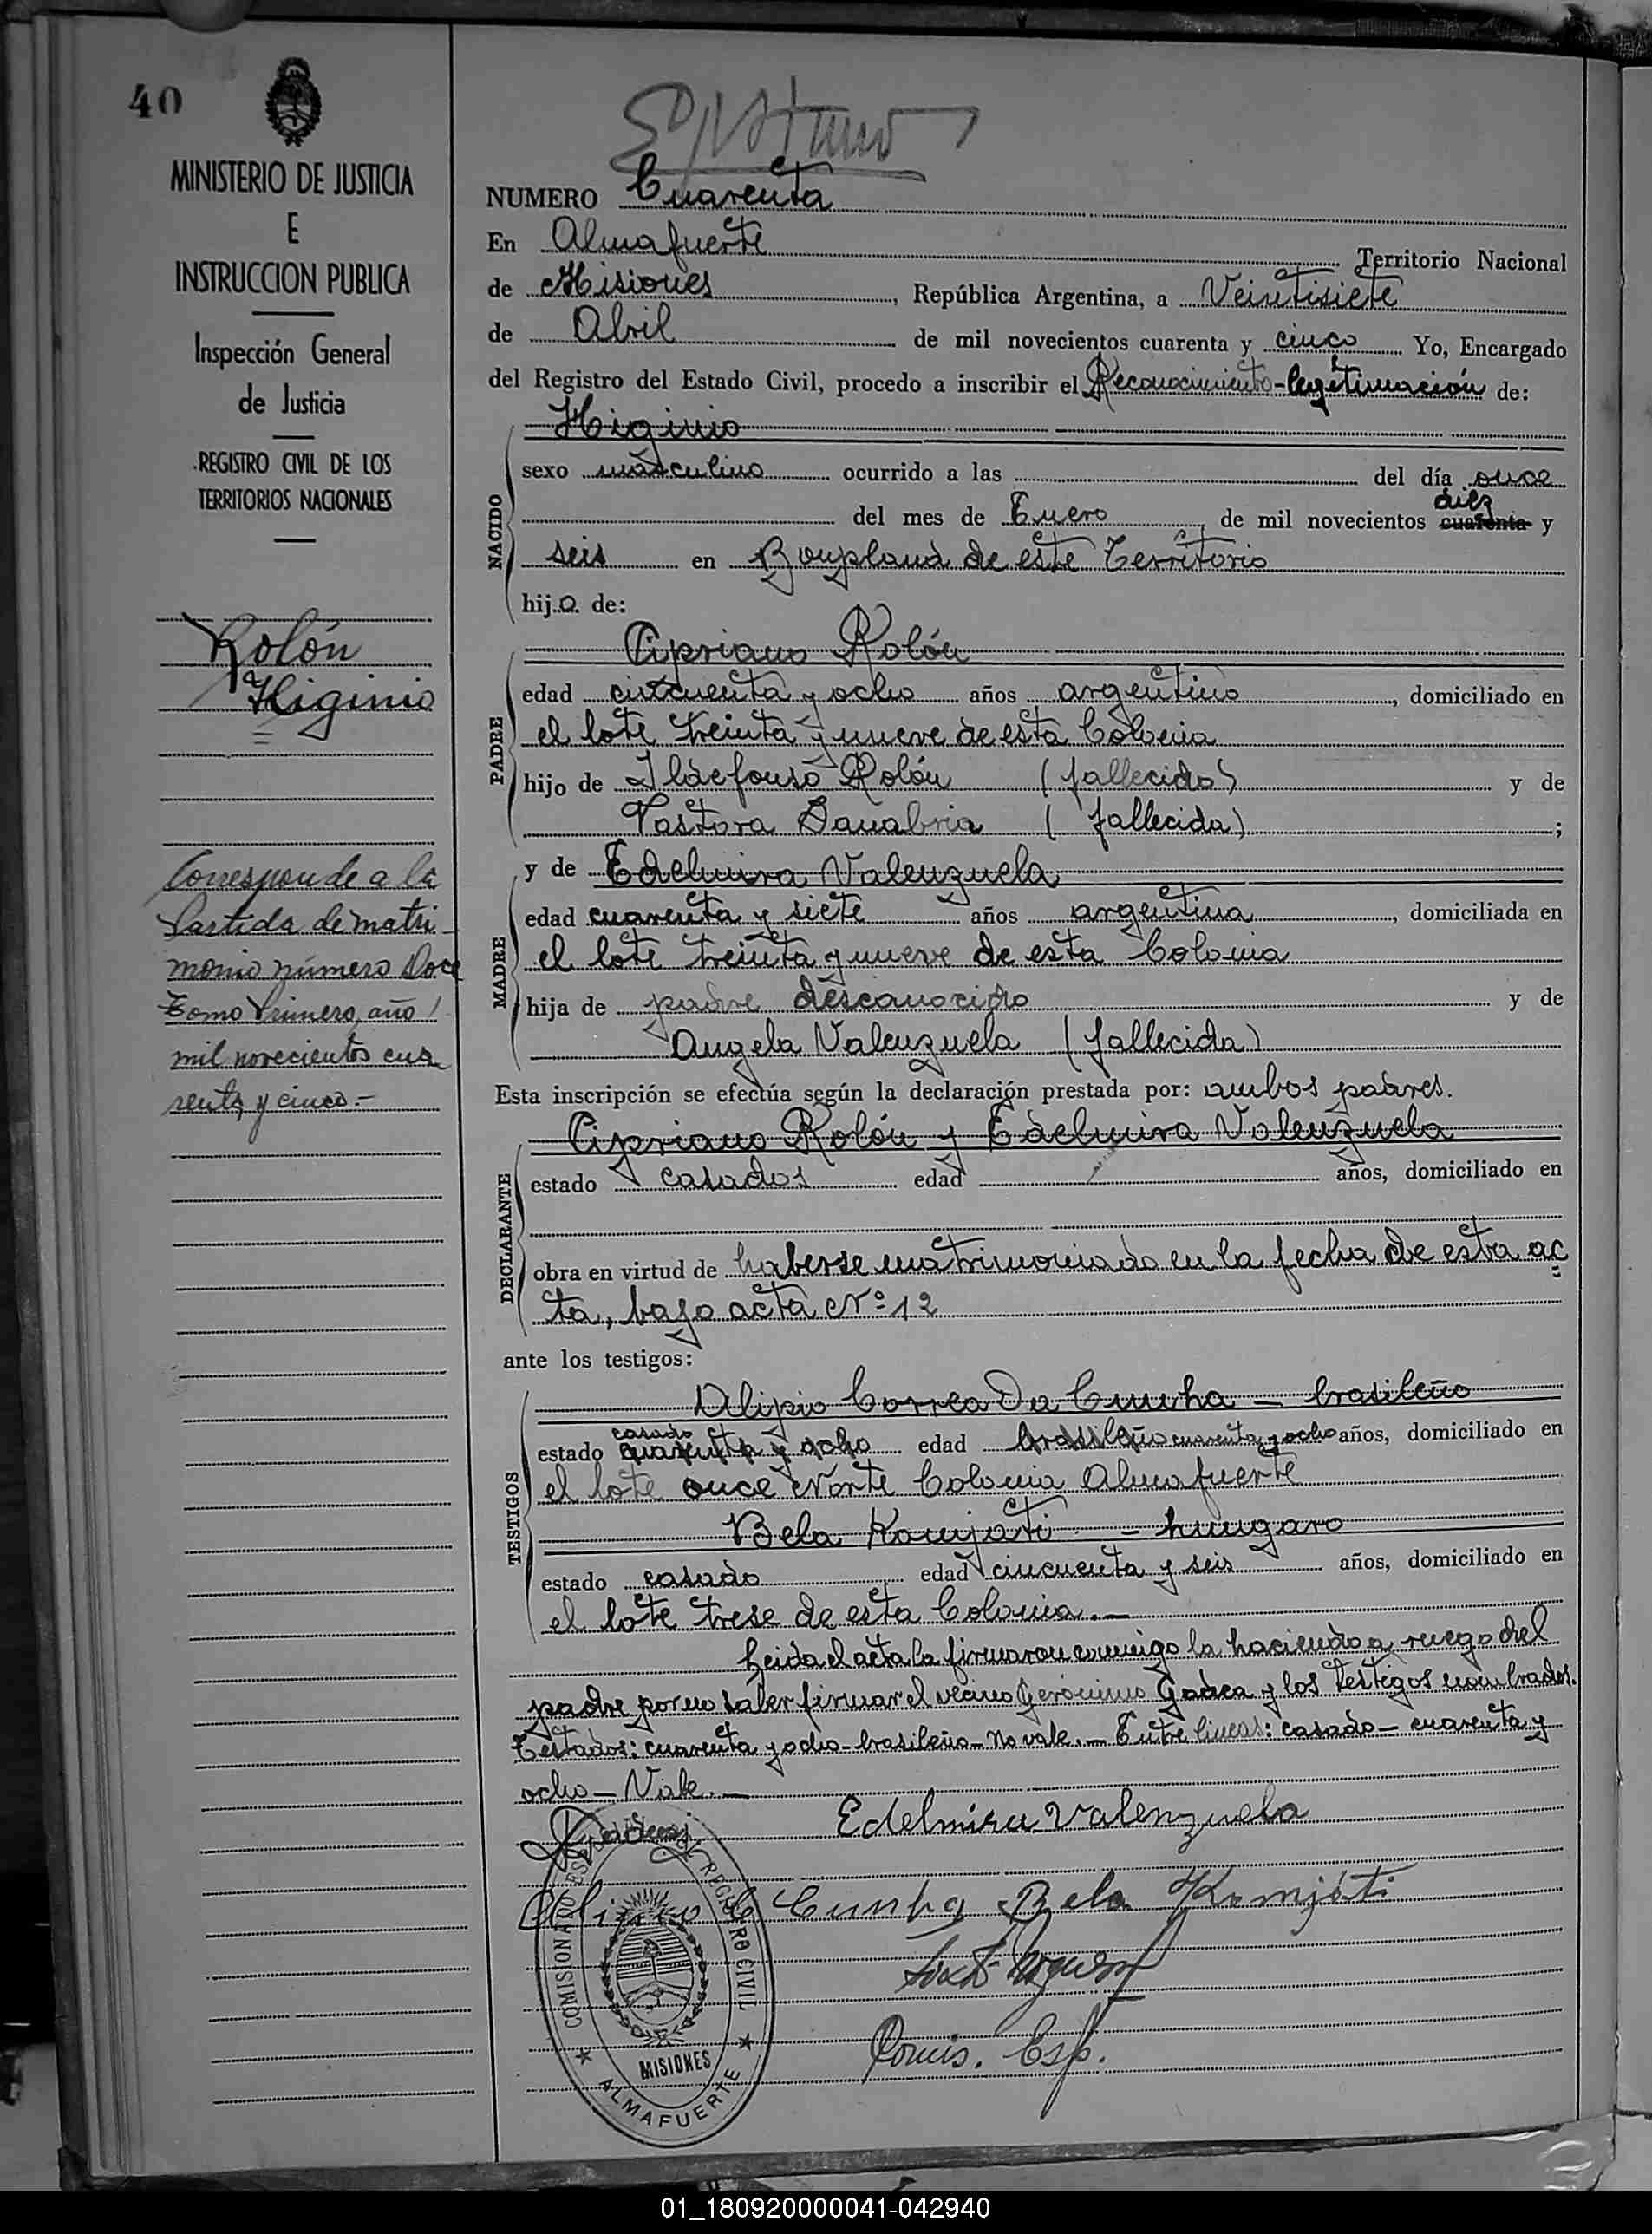 40
MINISTERIO DE JUSTICIA
E
INSTRUCCION PUBLICA
Inspección General
de Justicia
REGISTRO CIVIL DE LOS
TERRITORIOS NACIONALES
Rolón
Higinio
Corresponde a la
Partida de matri-
monio número Doce
Tomo Primero, año
mil novecientos cua
renta y cinco.-
NUMERO Cuarenta
En Almafuerte Territorio Nacional
de Misiones, República Argentina, a Veintisiete
de Abril de mil novecientos cuarenta y cinco Yo, Encargado
del Registro del Estado Civil, procedo a inscribir el Reconocimiento-legitimación de:
Higinio
NACIDO
sexo masculino ocurrido a las del día once
del mes de Enero, de mil novecientos cuarenta diez y
seis en Bonpland de este Territorio
hijo de:
Cipriano Rolón
PADRE
edad cincuenta y ocho años argentino, domiciliado en
el lote treinta y nueve de esta Colonia
hijo de Ildefonso Rolón (fallecido) y de
Pastora Sanabria (fallecida);
y de Edelmira Valenzuela
MADRE
edad cuarenta y siete años argentina, domiciliada en
el lote treinta y nueve de esta Colonia
hija de padre desconocido y de
Angela Valenzuela (fallecida)
Esta inscripción se efectúa según la declaración prestada por: ambos padres.
Cipriano Rolón y Edelmira Valenzuela
DECLARANTE
estado casados edad años, domiciliado en
obra en virtud de haberse matrimoniado en la fecha de esta ac
ta, bajo acta Nº 12
ante los testigos:
TESTIGOS
Alipio Correa Da Cunha - brasileño
estado cuarenta y ocho casado edad brasileño cuarenta y ocho años, domiciliado en
el lote once Norte Colonia Almafuerte
Bela Komjati - hungaro
estado casado edad cincuenta y seis años, domiciliado en
el lote trese de esta Colonia.-
Leida el acta la firmaron conmigo la haciendo a ruego del
padre por no saber firmar el vecino Gerónimo y los testigos nombrados.
Testados: cuarenta y ocho - brasileño - No vale.- Entre líneas: casado - cuarenta y
ocho - Vale.-
Edelmira Valenzuela
Alipio C Cunha Bela Komjáti
Comis. Esp.
COMISIONADO ESP. REGISTRO CIVIL
MISIONES
ALMAFUERTE
01_180920000041-042940